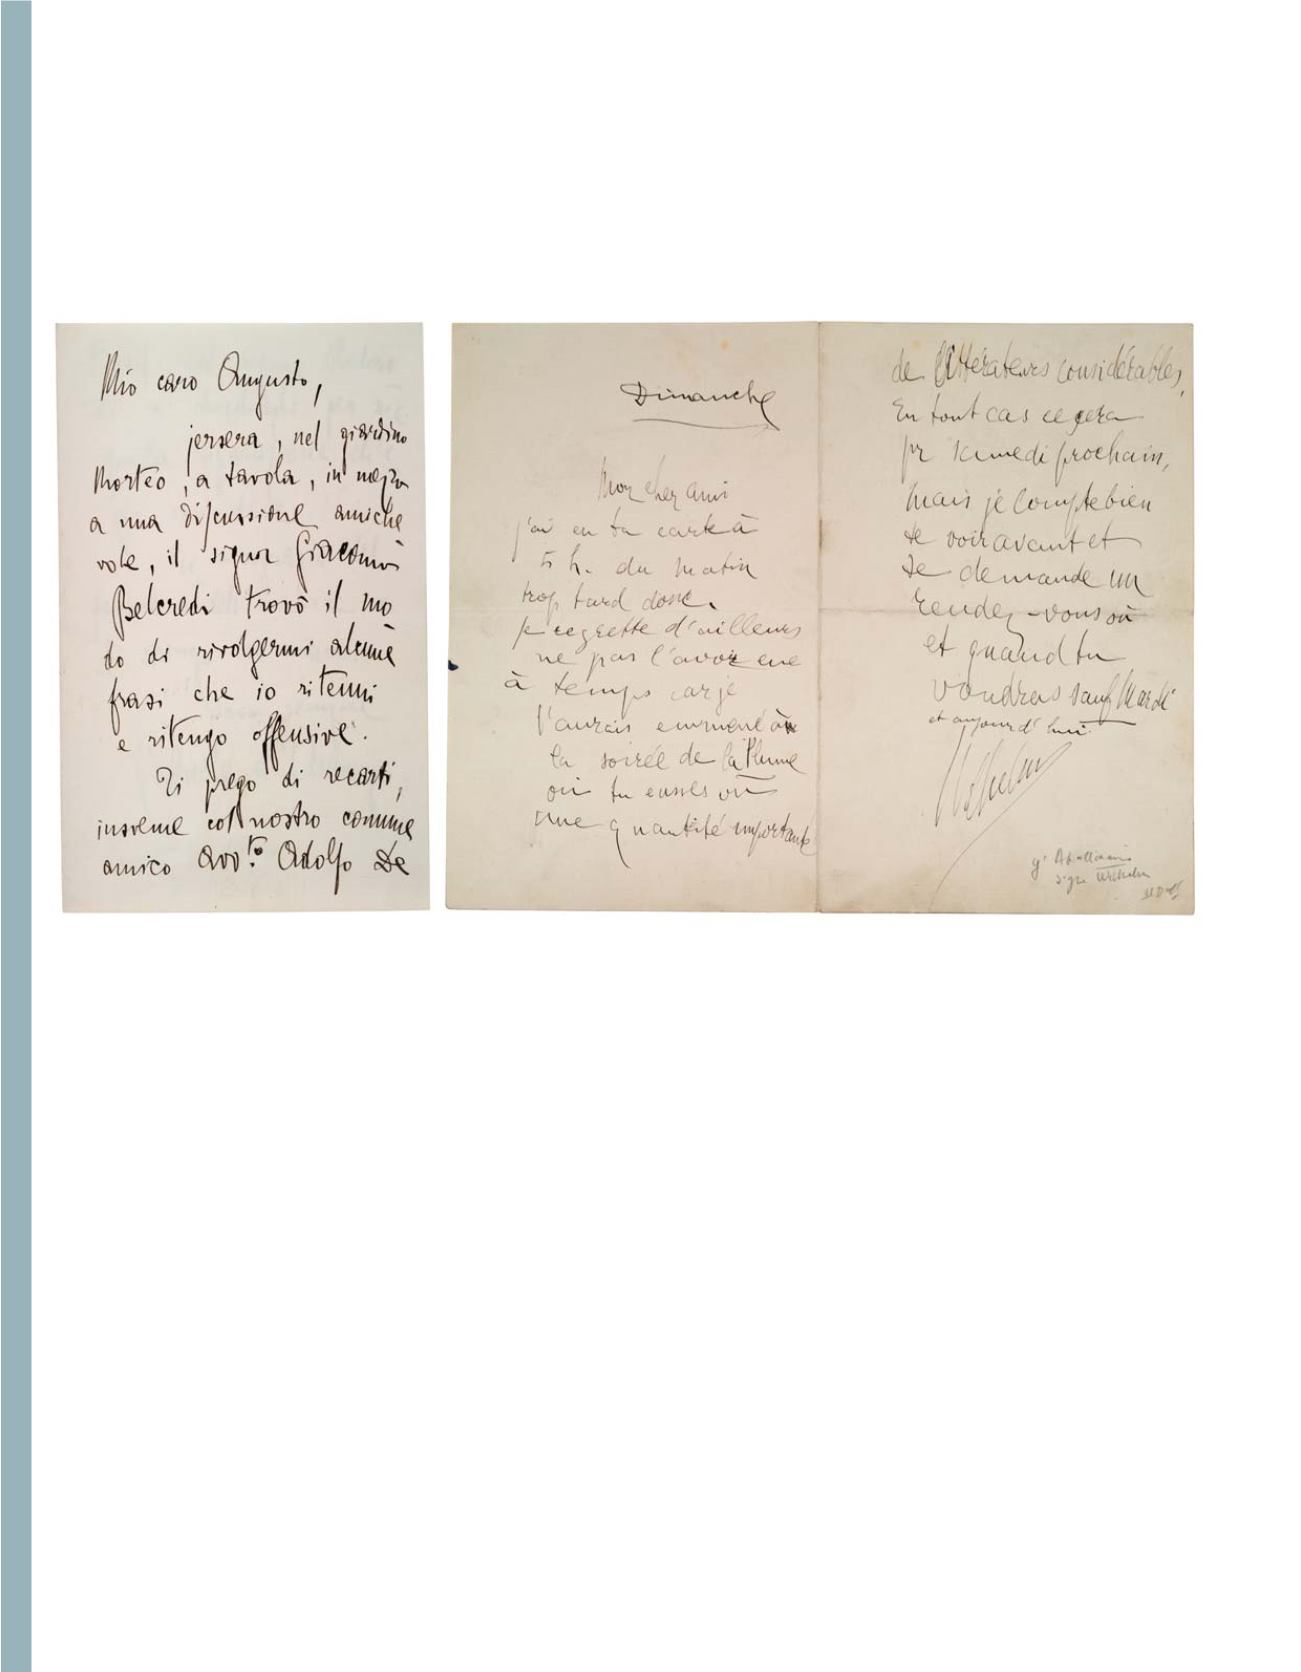 Mio caro Augusto,
jersera, nel giardino
Morteo, a tavola, in mezzo
a una discussione amiche
vole, il signor Giacomo
Belcredi trovò il mo
do di rivolgermi alcune
frasi che io ritenni
e ritengo offensive.
Ti prego di recarti,
insieme col nostro comune
amico Avv.to Adolfo De
Dimanche
Mon cher ami
j'ai eu ta carte à
5 h. du matin
trop tard donc.
Je regrette d'ailleurs
ne pas l'avoir eue
à temps car je
t'aurais emmené à
la soirée de la Plume
où tu eusses vu
une quantité importante
de littérateurs considérables,
En tout cas ce sera
pr samedi prochain,
mais je compte bien
te voir avant et
te demande un
rendez-vous où
et quand tu
voudras sauf Mardi
et aujourd'hui.
Wilhelm
g' Apollinaire
signe Wilhelm